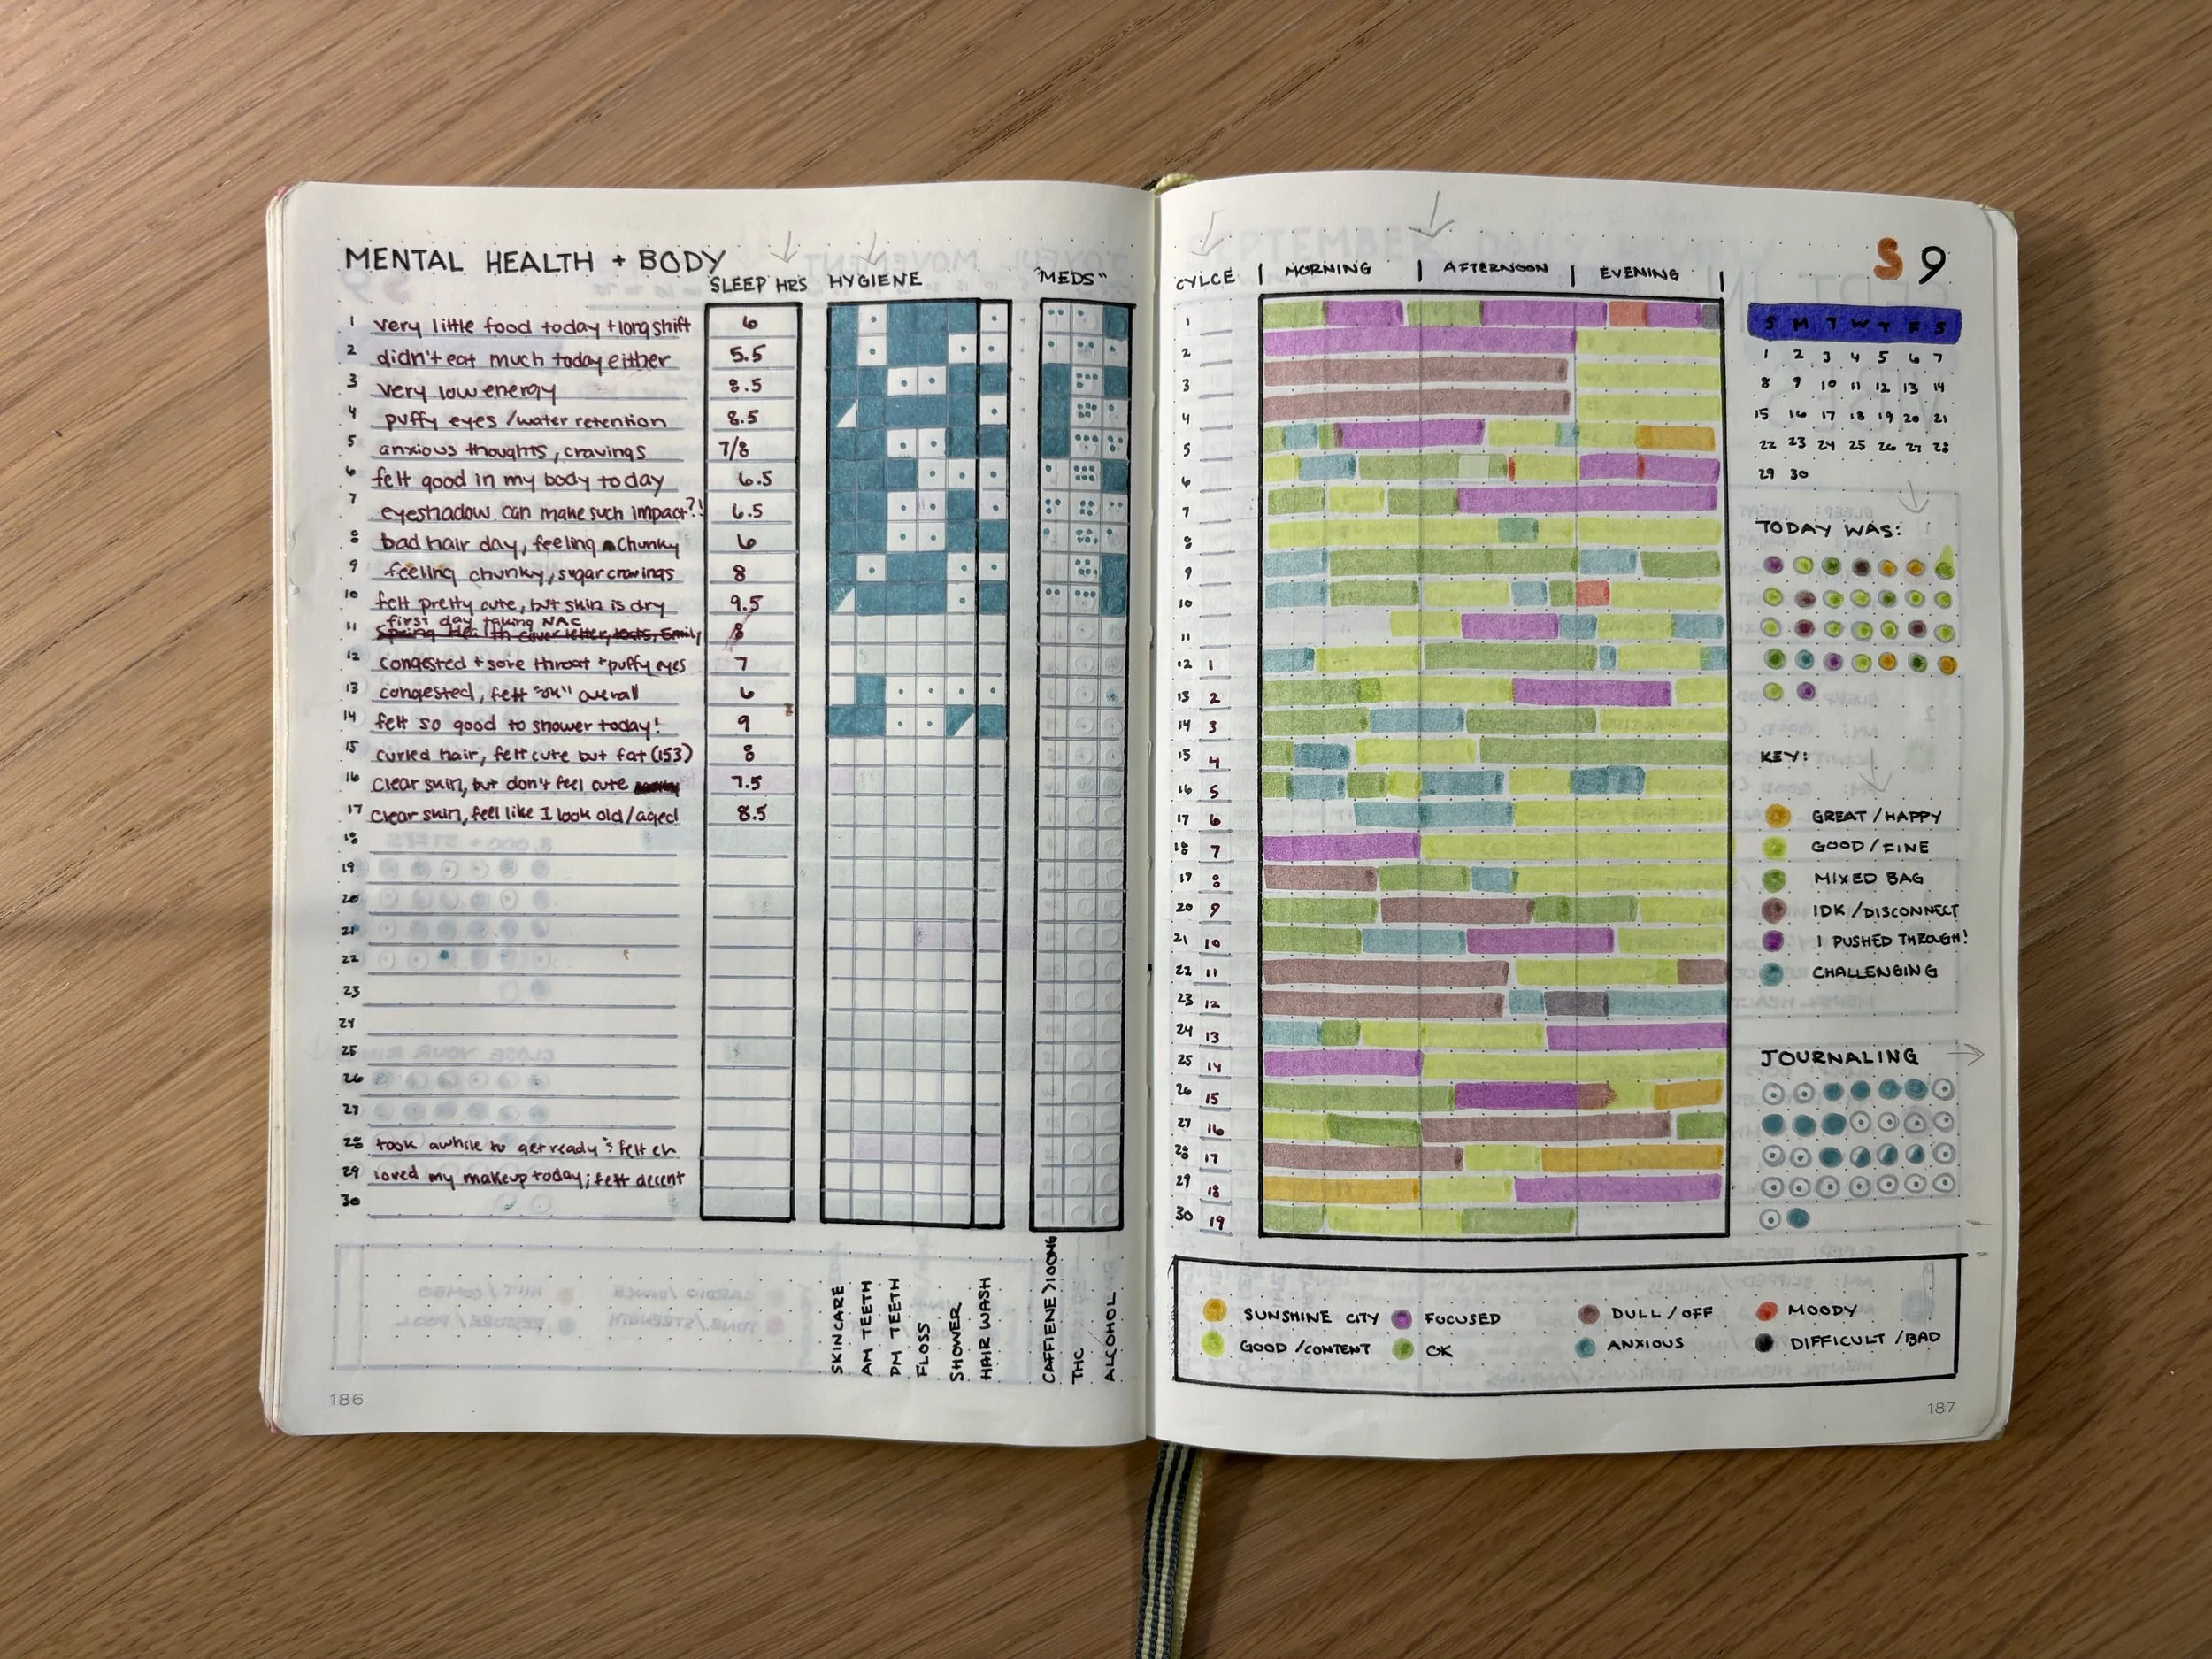 MENTAL HEALTH + BODY
SLEEP HRS HYGIENE "MEDS"
1 very little food today + long shift 6
2 didn't eat much today either 5.5
3 very low energy 8.5
4 puffy eyes / water retention 8.5
5 anxious thoughts, cravings 7/8
6 felt good in my body today 6.5
7 eyeshadow can make such impact?! 6.5
8 bad hair day, feeling chunky 6
9 feeling chunky, sugar cravings 8
10 felt pretty cute, but skin is dry 9.5
first day taking NAC
11 Spring Health cover letter, texts, Emily 8
12 congested + sore throat + puffy eyes 7
13 congested, felt "ok" overall 6
14 felt so good to shower today! 9
15 curled hair, felt cute but fat (153) 8
16 clear skin, but don't feel cute 7.5
17 clear skin, feel like I look old/aged 8.5
18
19
20
21
22
23
24
25
26
27
28 took awhile to get ready; felt eh
29 loved my makeup today; felt decent
30
SKINCARE
AM TEETH
PM TEETH
FLOSS
SHOWER
HAIR WASH
CAFFIENE >100MG
THC
ALCOHOL
186
CYLCE | MORNING | AFTERNOON | EVENING |
1
2
3
4
5
6
7
8
9
10
11
12 1
13 2
14 3
15 4
16 5
17 6
18 7
19 8
20 9
21 10
22 11
23 12
24 13
25 14
26 15
27 16
28 17
29 18
30 19
S 9
S M T W T F S
1 2 3 4 5 6 7
8 9 10 11 12 13 14
15 16 17 18 19 20 21
22 23 24 25 26 27 28
29 30
TODAY WAS:
KEY:
GREAT / HAPPY
GOOD / FINE
MIXED BAG
IDK / DISCONNECT
I PUSHED THROUGH!
CHALLENGING
JOURNALING
SUNSHINE CITY FOCUSED DULL / OFF MOODY
GOOD / CONTENT OK ANXIOUS DIFFICULT / BAD
187